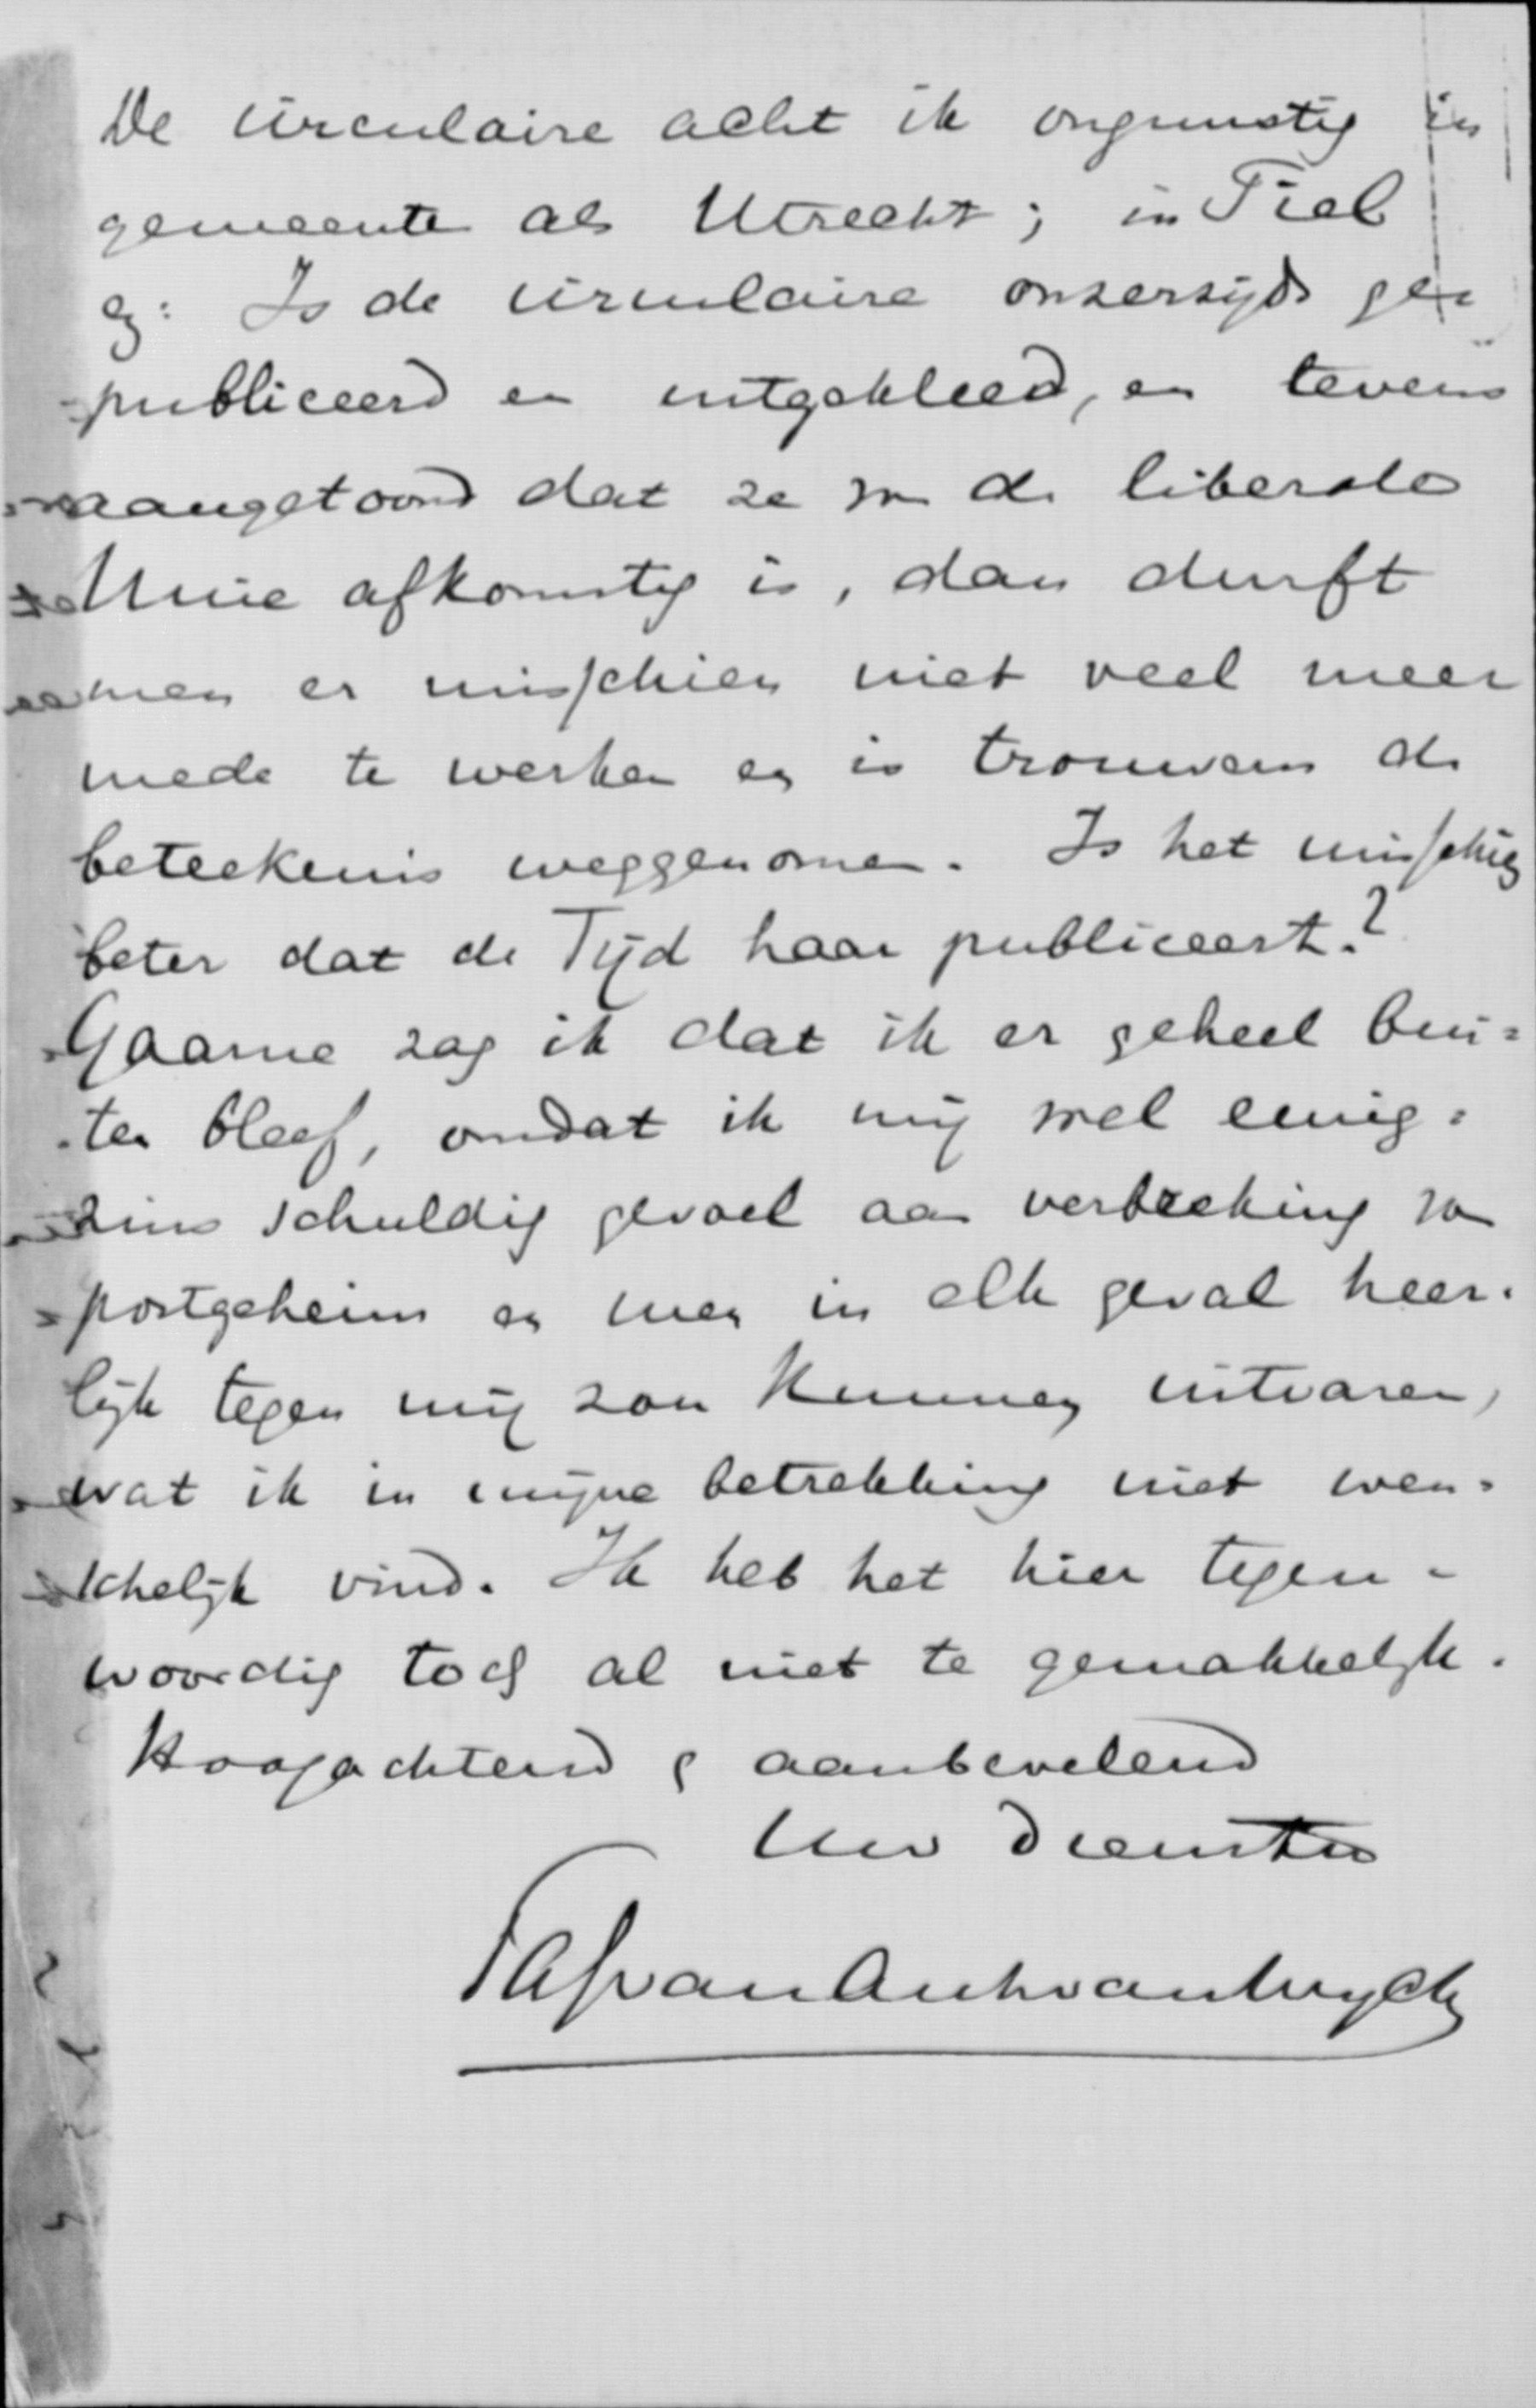 De circulaire acht ik ongunstig in
gemeente als Utrecht; in Tiel
Is de circulaire onzerzijds ge=
publiceerd en uitgekleed, en tevens
aangetoond dat ze van de liberale
Unie afkomstig is, dan durft
men er misschien niet veel meer
mede te werken en is trouwens de
beteekenis weggenomen. Is het misschien
beter dat de Tijd haar publiceert?
Gaarne zag ik dat ik er geheel bui=
ten bleef, omdat ik mij wel eenig=
zins schuldig gevoel aan verbreking van
postgeheim en men in elk geval heer=
lijk tegen mij zou kunnen uitvaren,
wat ik in mijne betrekking niet wen=
schelijk vind. Ik heb het hier tegen=
woordig toch al niet te gemakkelijk.
Hoogachtend & aanbevelend
Uw Dienstw